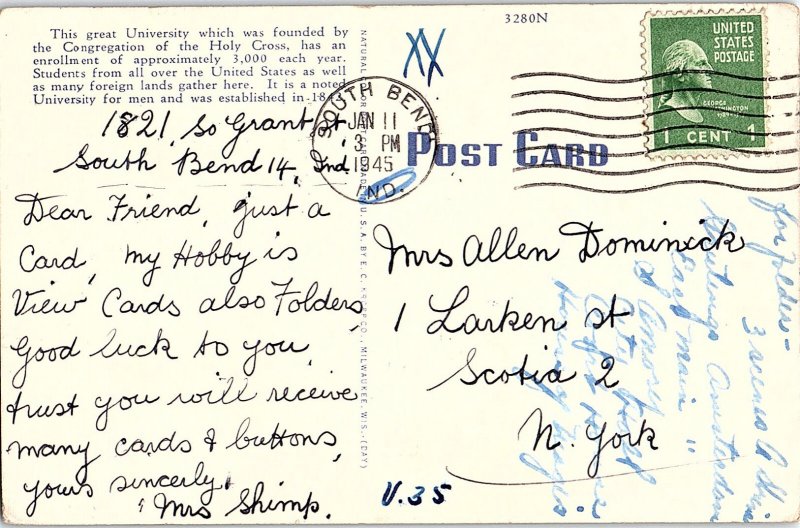 This great University which was founded by
the Congregation of the Holy Cross, has an
enrollment of approximately 3,000 each year.
Students from all over the United States as well
as many foreign lands gather here. It is a noted
University for men and was established in
3280N
XX
UNITED
STATES
POSTAGE
GEORGE
WASHINGTON
1 CENT 1
SOUTH BEND
JAN 11
3 PM
1945
IND.
POST CARD
1821, So Grant St
South Bend 14, Ind.
Dear Friend, just a
Card, my Hobby is
View Cards also Folders,
Good luck to you,
trust you will receive
many cards & buttons,
yours sincerly.
Mrs Shimp.
U.S.A. BY E. C. KROPP CO., MILWAUKEE, WIS.
Mrs Allen Dominick
1 Larken st
Scotia 2
N. York
V.35
for folder -
3 scenes
Amsterdam
East main "